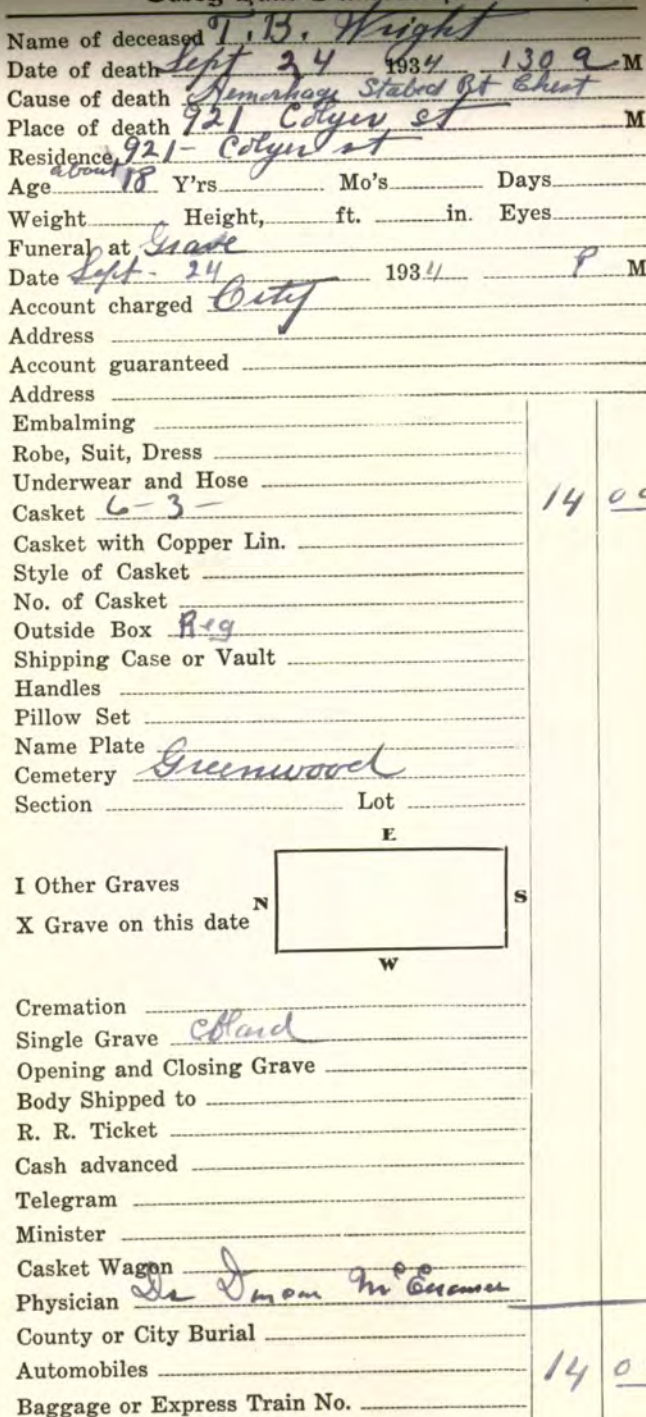 Name of deceased T. B. Wright
Date of death Sept 24 1934 130 a M
Cause of death Hemorhage Stabed Rt Chest
Place of death 921 Colyer st M
Residence, 921 - Colyer st
Age about 18 Y'rs Mo's Days
Weight Height, ft. in. Eyes
Funeral at Grave
Date Sept - 24 1934 P M
Account charged City
Address
Account guaranteed
Address
Embalming
Robe, Suit, Dress
Underwear and Hose
Casket 6-3- 14 00
Casket with Copper Lin.
Style of Casket
No. of Casket
Outside Box Reg
Shipping Case or Vault
Handles
Pillow Set
Name Plate
Cemetery Greenwood
Section Lot
E
I Other Graves
N S
X Grave on this date
W
Cremation
Single Grave
Opening and Closing Grave
Body Shipped to
R. R. Ticket
Cash advanced
Telegram
Minister
Casket Wagon
Physician Dr
County or City Burial
Automobiles 14 0
Baggage or Express Train No.